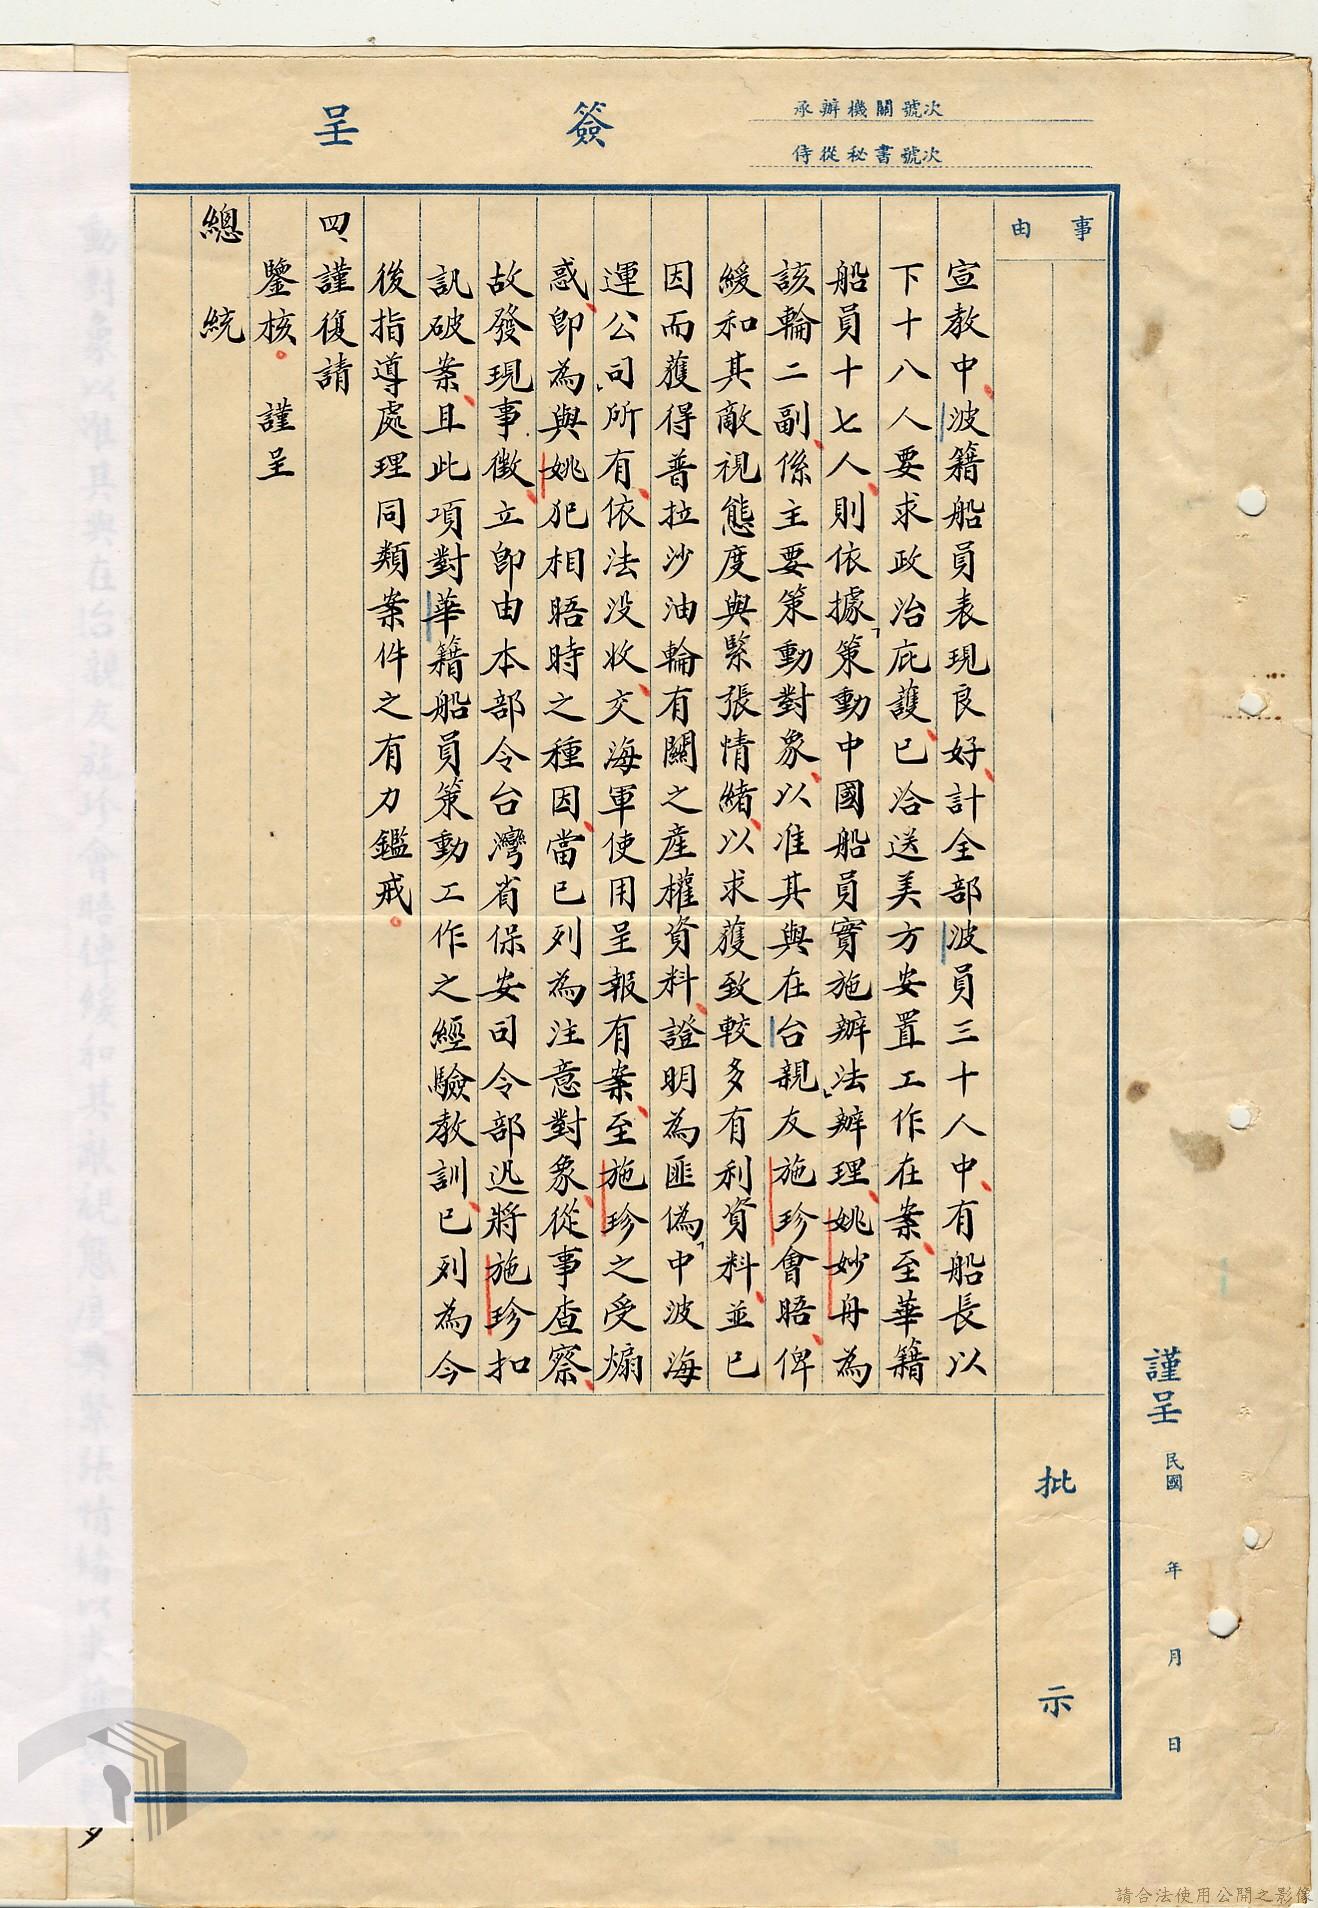 承辦機關號次
侍從秘書號次
簽呈
事由
宣教中、波籍船員表現良好、計全部波員三十人中、有船長以
下十八人要求政治庇護、已洽送美方安置工作在案、至華籍
船員十七人、則依據「策動中國船員實施辦法」辦理、姚妙舟為
該輪二副、係主要策動對象、以准其與在台親友施珍會晤、俾
緩和其敵視態度與緊張情緒、以求獲致較多有利資料、並已
因而獲得普拉沙油輪有關之產權資料、證明為匪偽「中波海
運公司」所有、依法沒收、交海軍使用呈報有案、至施珍之受煽
惑、即為與姚犯相晤時之種因、當已列為注意對象、從事查察、
故發現事徵、立即由本部令台灣省保安司令部迅將施珍扣
訊破案、且此項對華籍船員策動工作之經驗教訓、已列為今
後指導處理同類案件之有力鑑戒。
四、謹復請
鑒核。　謹呈
總統
批示
謹呈
民國　年　月　日
請合法使用公開之影像